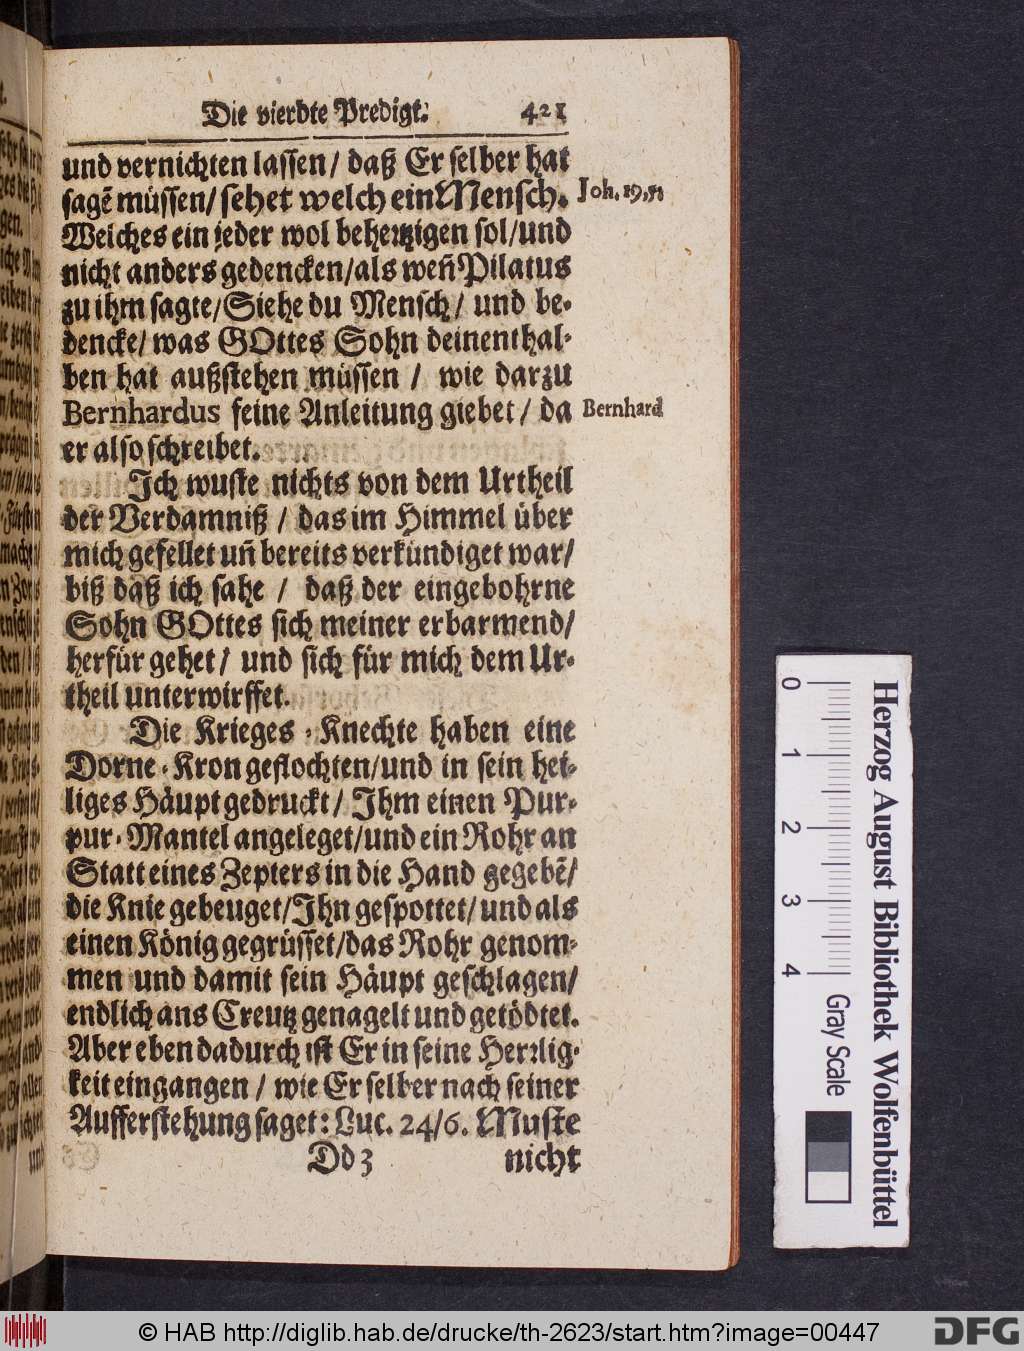 Die vierdte Predigt. 421
und vernichten lassen/ daß Er selber hat
sagē müssen/ sehet welch ein Mensch. Joh. 19,
Welches ein jeder wol behertzigen sol/und
nicht anders gedencken/als weñ Pilatus
zu ihm sagte/Siehe du Mensch/ und be-
dencke/ was GOttes Sohn deinenthal-
ben hat außstehen müssen / wie darzu
Bernhardus feine Anleitung giebet/ da Bernhard
er also schreibet.
Ich wuste nichts von dem Urtheil
der Verdamniß / das im Himmel über
mich gefellet uñ bereits verkündiget war/
biß daß ich sahe / daß der eingebohrne
Sohn GOttes sich meiner erbarmend/
herfür gehet/ und sich für mich dem Ur-
theil unterwirffet.
Die Krieges-Knechte haben eine
Dorne-Kron geflochten/und in sein hei-
liges Häupt gedruckt/ Ihm einen Pur-
pur-Mantel angeleget/und ein Rohr an
Statt eines Zepters in die Hand gegebē/
die Knie gebeuget/Ihn gespottet/und als
einen König gegrüsset/das Rohr genom-
men und damit sein Häupt geschlagen/
endlich ans Creutz genagelt und getödtet.
Aber eben dadurch ist Er in seine Herrlig-
keit eingangen / wie Er selber nach seiner
Aufferstehung saget: Luc. 24/6. Muste
Dd 3 nicht
0 1 2 3 4
Gray Scale
Herzog August Bibliothek Wolfenbüttel
© HAB http://diglib.hab.de/drucke/th-2623/start.htm?image=00447
DFG